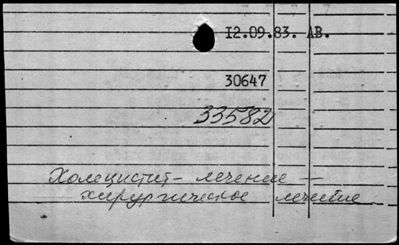 12.09.83. АВ.
30647
33582
Холецистит - лечение —
хирургическое лечение